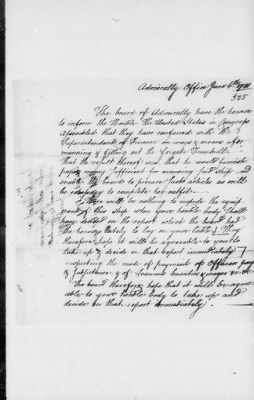 Admiralty Office June 6th 1781
325
The board of Admiralty have the honour
to inform the Honble. The United States in Congress
assembled that they have conferred with the
Superintendant of Finance on ways & means for
manning & fitting out the frigate Trumbull.
That the result thereof was, that he would furnish
money sufficient for manning said ship and
enable the board to procure such articles as will
be necessary to complete her outfit.
There will be nothing to impede the equip
ment of this ship when your honble body shall
have decided on the report which the board had
the honour lately to lay on your table. They
therefore hope it will be agreeable to you to
take up & decide on that report immediately
respecting the mode of payment of Officers pay
& subsistance & of seamens bounties & wages
The board therefore hope that it will be agree
able to your honble body to take up and
decide on that report immediately.